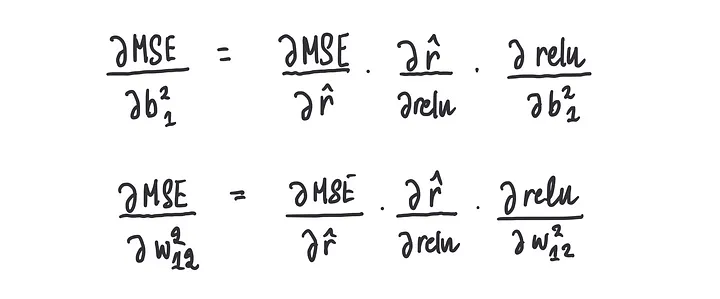 ∂MSE/∂b²₁ = ∂MSE/∂r̂ · ∂r̂/∂relu · ∂relu/∂b²₁
∂MSE/∂w²₁₂ = ∂MSE/∂r̂ · ∂r̂/∂relu · ∂relu/∂w²₁₂